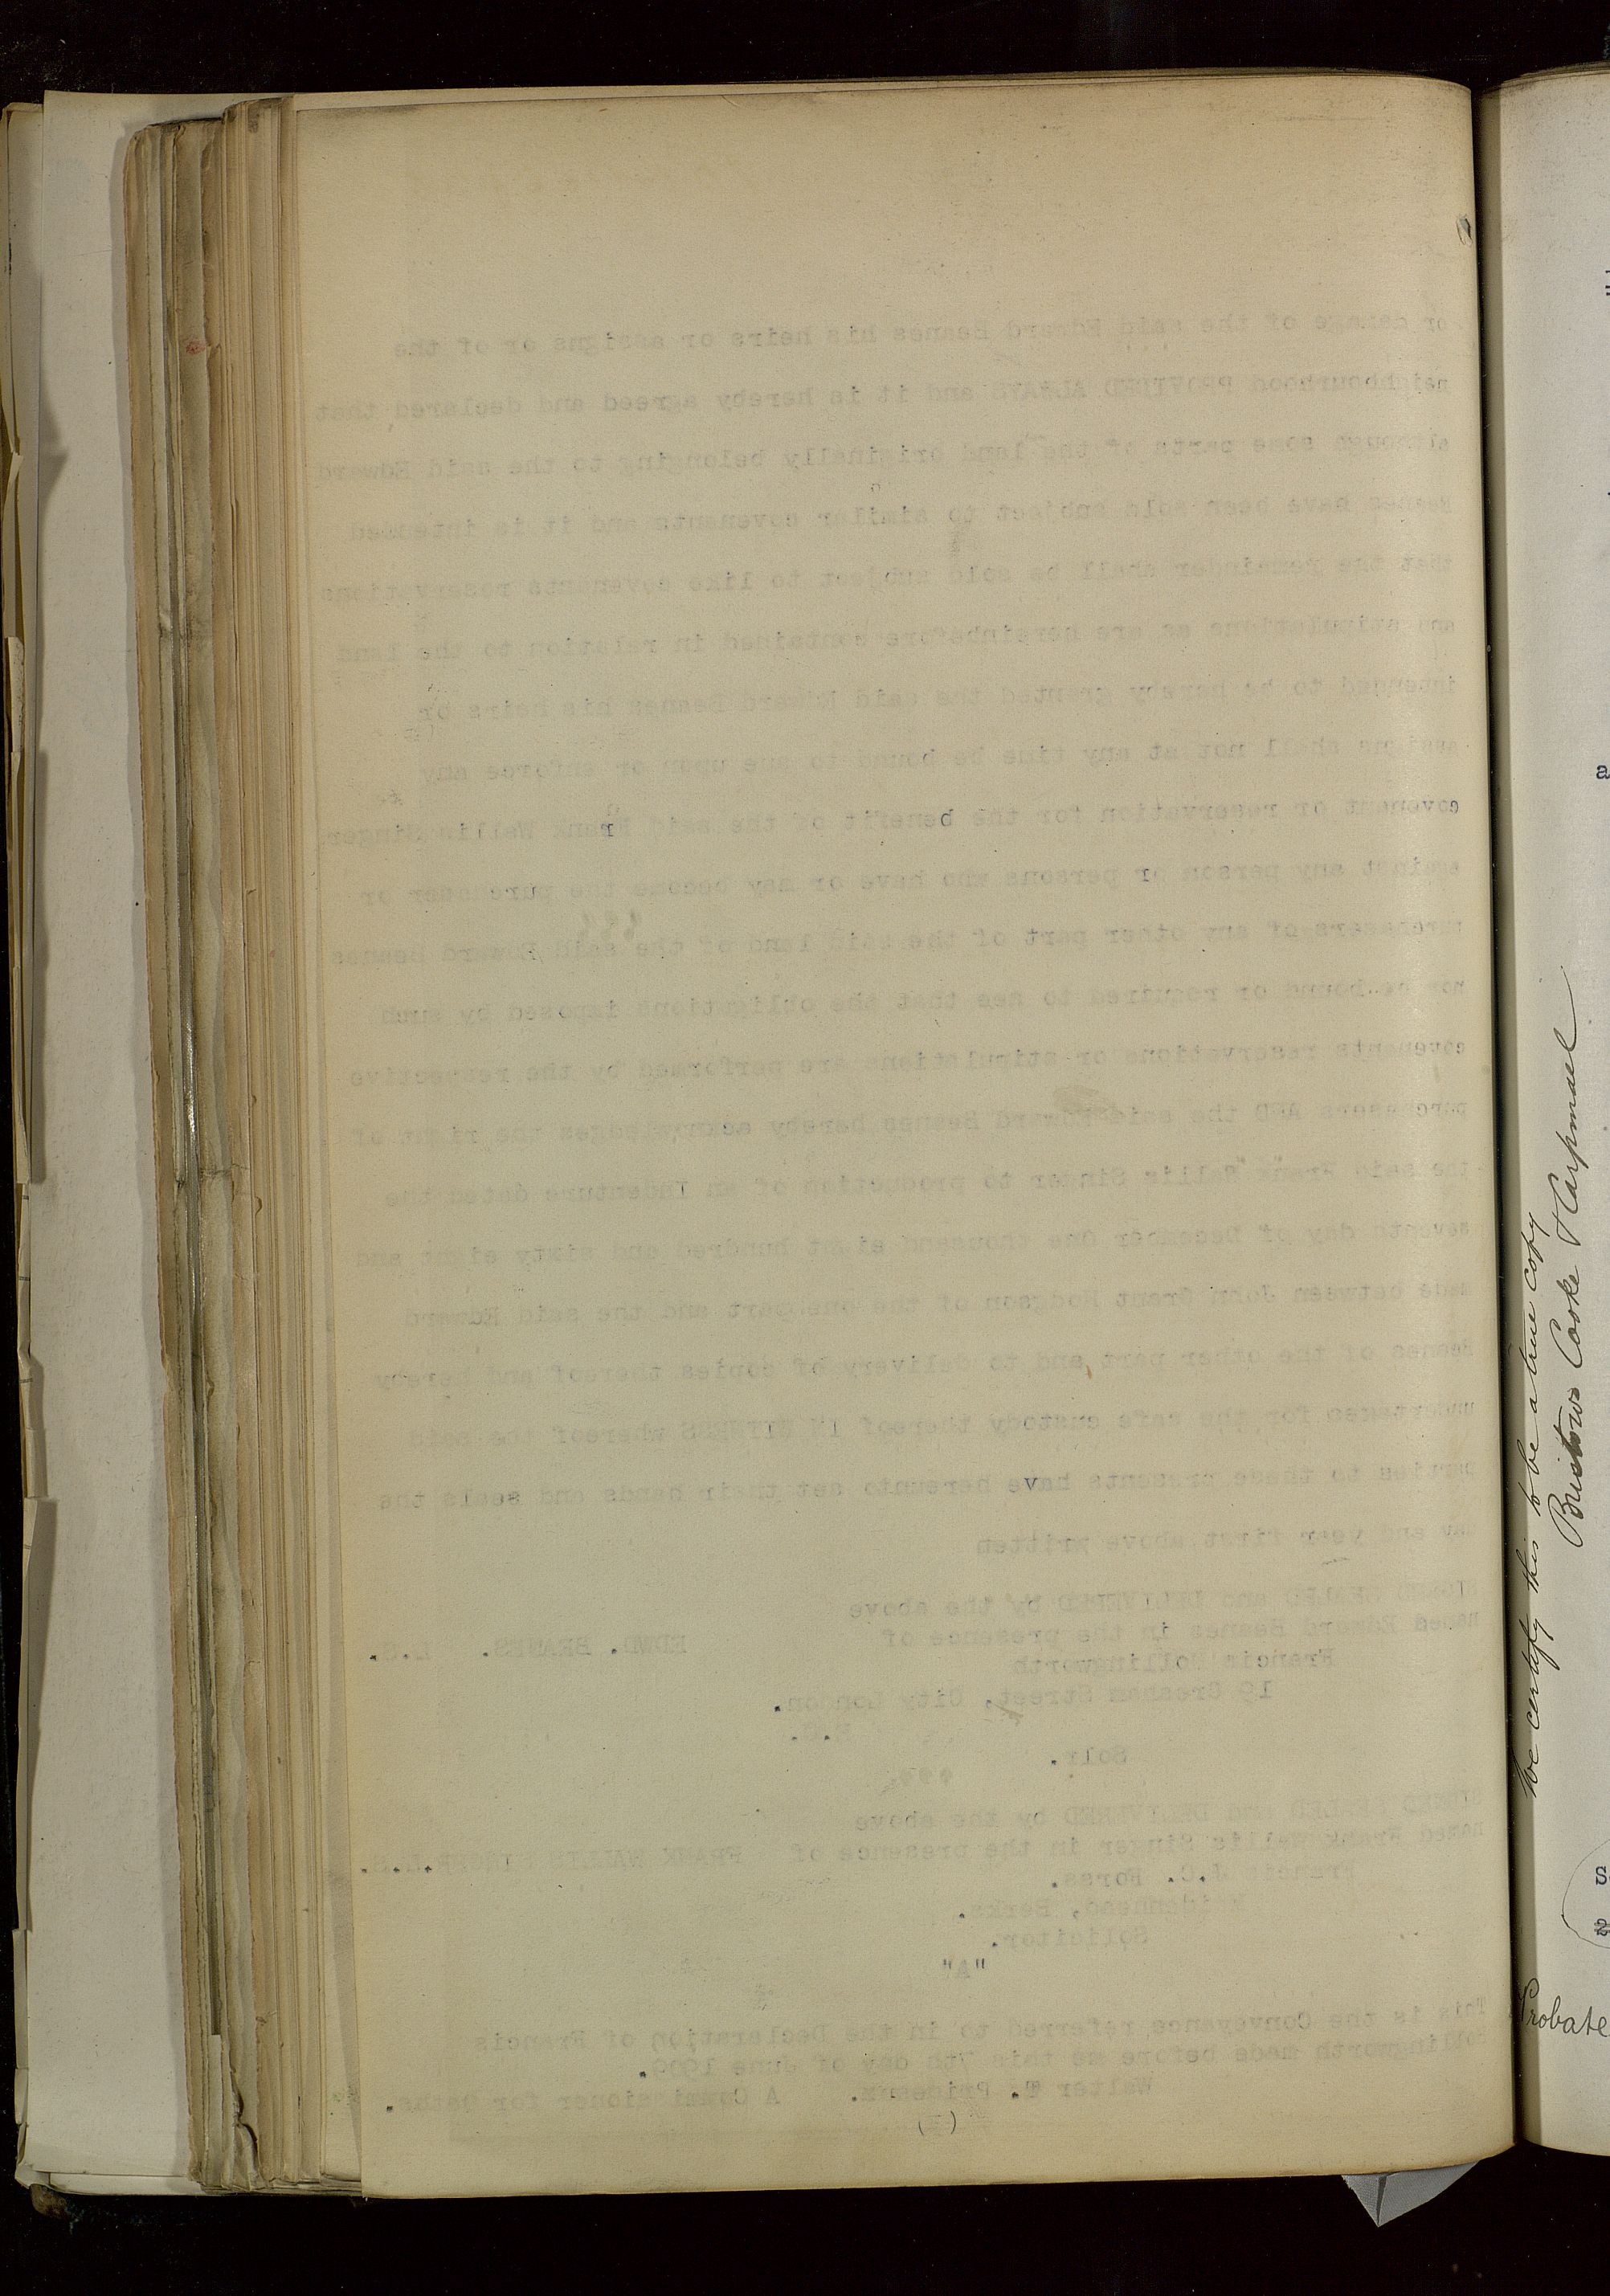 or damage of the said Edward Beanes his heirs or assigns or of the
neighbourhood PROVIDED ALWAYS and it is hereby agreed and declared that
although some parts of the land originally belonging to the said Edward
Beanes have been sold subject to similar covenants and it is intended
that the remainder shall be sold subject to like covenants reservations
and stipulations as are hereinbefore contained in relation to the land
intended to be hereby granted the said Edward Beanes his heirs or
assigns shall not at any time be bound to sue upon or enforce any
covenant or reservation for the benefit of the said Frank Wallis Singer
against any person or persons who have or may become the purchaser or
purchasers of any other part of the said land of the said Edward Beanes
nor be bound or required to see that the obligations imposed by such
covenants reservations or stipulations are performed by the respective
purchasers AND the said Edward Beanes hereby acknowledges the right of
the said Frank Wallis Singer to production of an Indenture dated the
seventh day of December One thousand eight hundred and sixty eight and
made between John Grant Hodgson of the one part and the said Edward
Beanes of the other part and to delivery of copies thereof and hereby
undertakes for the safe custody thereof IN WITNESS whereof the said
parties to these presents have hereunto set their hands and seals the
day and year first above written
SIGNED SEALED and DELIVERED by the above
named Edward Beanes in the presence of EDWD. BEANES. L.S.
Francis Hollingworth
19 Gresham Street, City London.
Solr.
SIGNED SEALED and DELIVERED by the above
named Frank Wallis Singer in the presence of FRANK WALLIS SINGER. L.S.
Francis J.C.
Maidenhead, Berks.
Solicitor.
"A"
This is the Conveyance referred to in the Declaration of Francis
Hollingworth made before me this 7th day of June 1909.
Walter T. A Commissioner for Oaths.
We certify this to be a true copy
Bristows Cooke & Carpmael
a
S
Probate